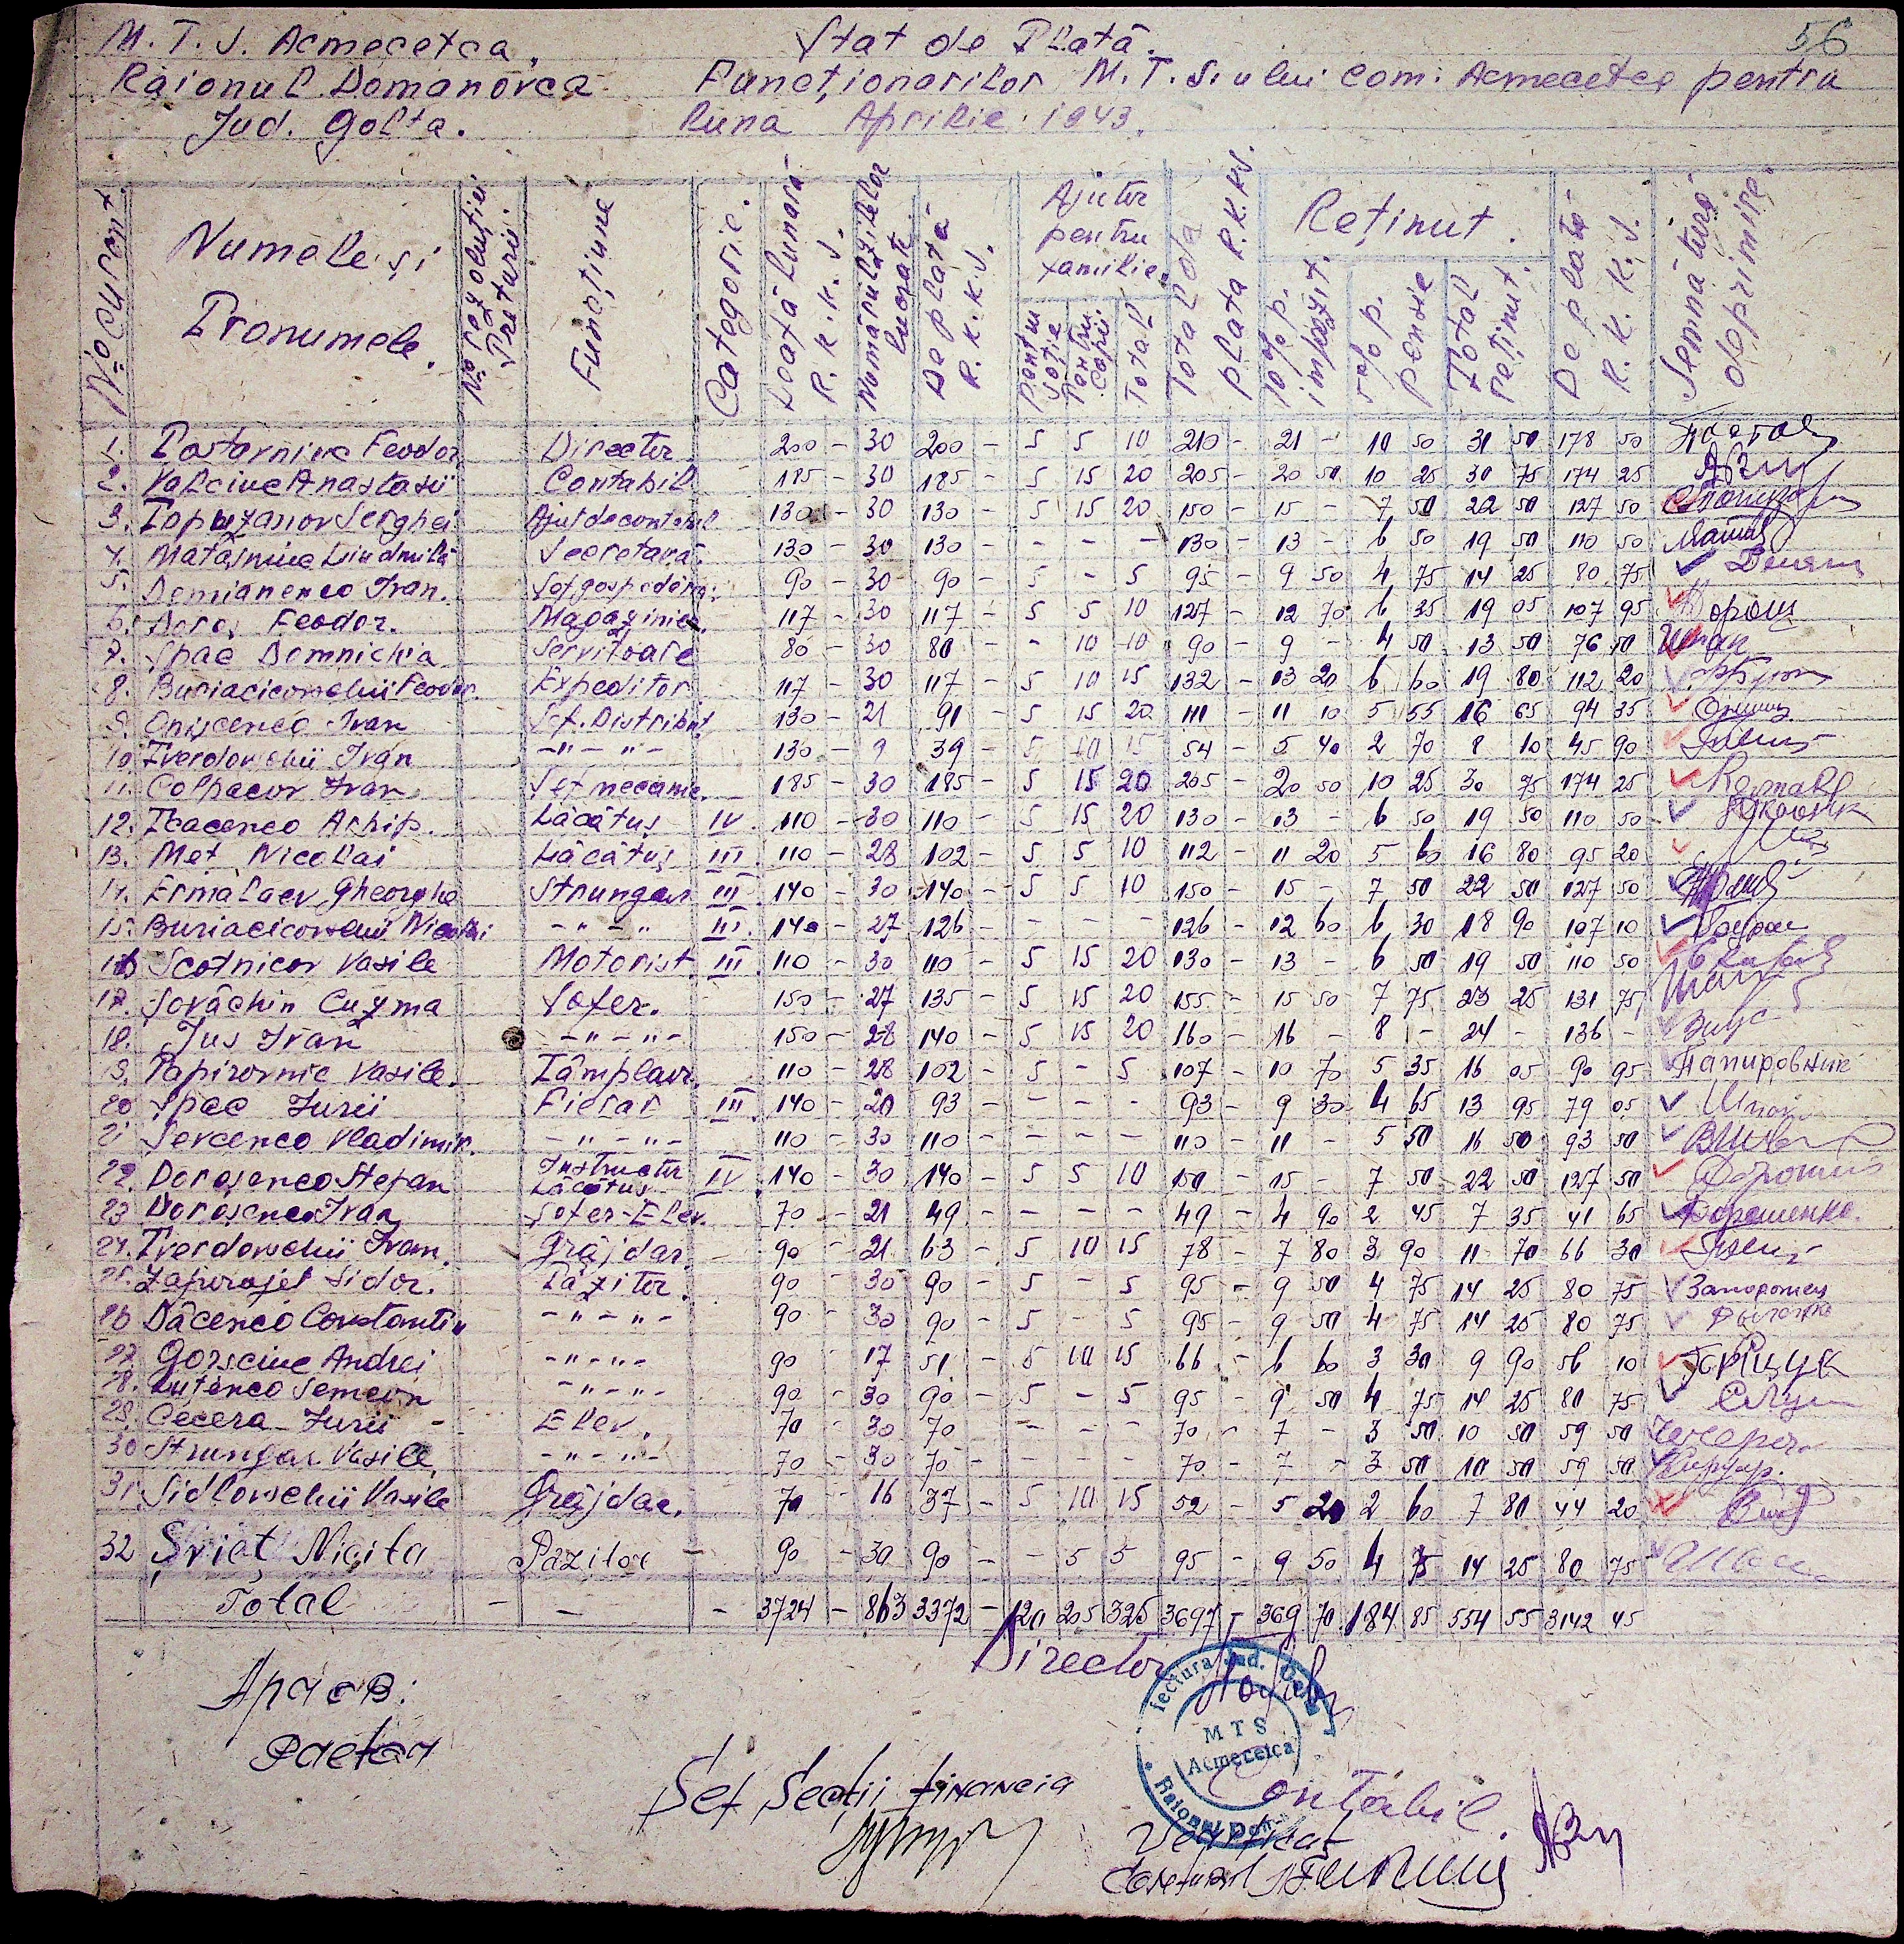 56
M. T. S. Acmecetca, Stat de Plată.
Raionul Domanovca Funcționarilor M.T.S.ului Com. Acmecetca pentru
Jud. Golta. luna Aprilie 1943.
No curent
Numele și Pronumele.
No rezoluției Preturii.
Funcțiune
Categorie.
Leafă lunară R. K. K. S.
Numărul zilelor lucrate
De plată R. K. K. S.
Ajutor pentru familie.
Pentru soție
Pentru copii
Total
Total de plata R.K.KS.
Reținut.
10% p. impozit.
5% p. pensie
Total reținut.
De plată R. K. K. S.
Semnătura de primire.
1. Pastarniuc Feodor Director 200 - 30 200 - 5 5 10 210 - 21 - 10 50 31 50 178 50
2. Valciuc Anastasii Contabil 185 - 30 185 - 5 15 20 205 - 20 50 10 25 30 75 174 25
3. Topuzanov Serghei Ajut de contabil 130 - 30 130 - 5 15 20 150 - 15 - 7 50 22 50 127 50
4. Matasniuc Liudmila Secretară. 130 - 30 130 - - - - 130 - 13 - 6 50 19 50 110 50
5. Demianenco Ivan. Șef gospodăriei 90 - 30 90 - 5 - 5 95 - 9 50 4 75 14 25 80 75
6. Doroș Feodor. Magaziner. 117 - 30 117 - 5 5 10 127 - 12 70 6 35 19 05 107 95 Дорош
7. Șpac Domnichia Servitoare 80 - 30 80 - - 10 10 90 - 9 - 4 50 13 50 76 50 Шпак
8. Buriacicovschii Feodor. Expeditor 117 - 30 117 - 5 10 15 132 - 13 20 6 60 19 80 112 20
9. Onișcenco Ivan Șef. Distribut. 130 - 21 91 - 5 15 20 111 - 11 10 5 55 16 65 94 35
10 Tverdovschii Ivan -"- -"- 130 - 9 39 - 5 10 15 54 - 5 40 2 70 8 10 45 90
11. Colpacov Ivan Șef mecanic. 185 - 30 185 - 5 15 20 205 - 20 50 10 25 30 75 174 25
12. Tcacenco Arhip. Lăcătuș IV. 110 - 30 110 - 5 15 20 130 - 13 - 6 50 19 50 110 50
13. Met Nicolai Lăcătuș III. 110 - 28 102 - 5 5 10 112 - 11 20 5 60 16 80 95 20
14. Ermalaev Gheorghe Strungar III 140 - 30 140 - 5 5 10 150 - 15 - 7 50 22 50 127 50
15. Buriacicovschii Nicolai -"-"- III. 140 - 27 126 - - - - 126 - 12 60 6 30 18 90 107 10
16 Scotnicov Vasile Motorist III 110 - 30 110 - 5 15 20 130 - 13 - 6 50 19 50 110 50
17. Șovăchin Cuzma Șofer. 150 - 27 135 - 5 15 20 155 - 15 50 7 75 23 25 131 75
18. Jus Ivan -"-"- 150 - 28 140 - 5 15 20 160 - 16 - 8 - 24 - 136 -
19. Papirovnic Vasile. Tâmplar. 110 - 28 102 - 5 - 5 107 - 10 70 5 35 16 05 90 95 Папировник
20 Șpac Iurii Fierar III 140 - 20 93 - - - - 93 - 9 30 4 65 13 95 79 05
21 Sevcenco Vladimir. -"-"- 110 - 30 110 - - - - 110 - 11 - 5 50 16 50 93 50
22. Doroșenco Stepan Instructor Lăcătuș IV. 140 - 30 140 - 5 5 10 150 - 15 - 7 50 22 50 127 50
23 Doroșenco Ivan Șofer-Elev. 70 - 21 49 - - - - 49 - 4 90 2 45 7 35 41 65 Дорошенко.
24. Tverdovschii Ivan. Grăjdar. 90 - 21 63 - 5 10 15 78 - 7 80 3 90 11 70 66 30
25. Zaporojeț Sidor. Păzitor. 90 - 30 90 - 5 - 5 95 - 9 50 4 75 14 25 80 75 Запорожец
26 Dâcenco Constantin -"-"- 90 - 30 90 - 5 - 5 95 - 9 50 4 75 14 25 80 75
27 Gorsciuc Andrei -"-"- 90 - 17 51 - 5 10 15 66 - 6 60 3 30 9 90 56 10
28. Luțenco Semeon -"-"- 90 - 30 90 - 5 - 5 95 - 9 50 4 75 14 25 80 75
29. Cecera Iurii Elev. 70 - 30 70 - - - 70 - 7 - 3 50 10 50 59 50
30 Strungar Vasile. -"-"- 70 - 30 70 - - - - 70 - 7 - 3 50 10 50 59 50
31. Sidlovschii Vasile Grăjdar. 70 - 16 37 - 5 10 15 52 - 5 20 2 60 7 80 44 20
32 Șviaț Nicita Păzitor - 90 - 30 90 - - 5 5 95 - 9 50 4 75 14 25 80 75
Total - - - 3724 - 863 3372 - 120 205 325 3697 - 369 70 184 85 554 55 3142 45
Director
MTS
Acmecetca
Șef Secții financia
Contabil.
Verificat